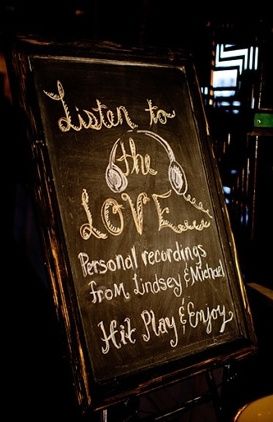 Listen to
the
LOVE
Personal recordings
from Lindsey & Michael
Hit Play & Enjoy